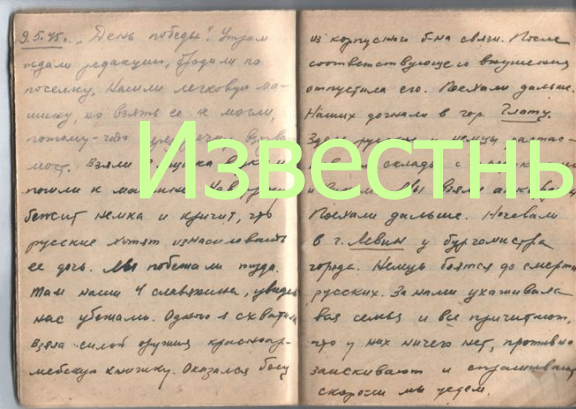 9.5.45. „День победы". Утром
ждали редакцию, бродили по
поселку. Нашли легковую ма-
шину, но взять ее не могли,
потому-что
мост. Взяли
пошли к машине.
бежит немка и кричит, что
русские хотят изнасиловать
ее дочь. Мы побежали туда.
Там наши 4 славянина, увидев
нас убежали. Одного я схватил
взяла силой оружия красноар-
мейскую книжку. Оказался боец
из корпусного б-на связи. После
соответствующего внушения
отпустила его. Поехали дальше.
Наших догнали в гор. Глатц.
Здесь русские немцы
склады с
и
Поехали дальше. Ночевали
в г. Левин у бургомистра
города. Немцы боятся до смерти
русских. За нами ухаживала
вся семья и все причитают,
что у них ничего нет, противно
заискивают и спрашивают
скоро ли мы уедем.
Известнь